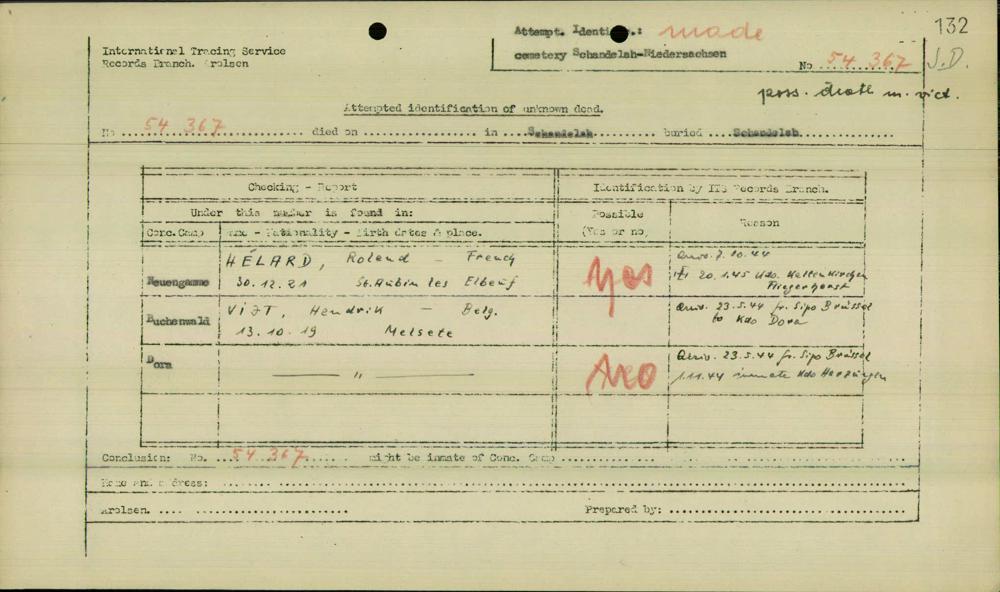 132
Attempt. Identi : made
International Tracing Service
Records Branch. Arolsen
cemetery Schandelah-Niedersachsen
No ..54.367..
J.D.
poss. death m. vict.
Attempted identification of unknown dead.
No ...54 367... died on ............ in ..Schandelah....... buried ...Schandelah............
Checking - Report
Identification by ITS Records Branch.
Under this number is found in:
Possible
(Yes or no)
Reason
Conc.Camp
Name - Nationality - Birth dates & place.
HÉLARD, Roland - French
Neuengamme
30.12.21 St. Aubin les Elbeuf
yes
arriv. 7.10.44
20.1.45 Kdo. Kaltenkirchen
Fliegerhorst
VIJT, Hendrik - Belg.
Buchenwald
13.10.19 Melsele
arriv. 23.5.44 fr. Sipo Brüssel
to Kdo Dora
Dora
——— " ———
No
arriv. 23.5.44 fr. Sipo Brüssel
1.11.44 inmate Kdo Harzungen
Conclusion: No. ...54 367...... might be inmate of Conc. Camp ..............................
Name and address: ..............................
Arolsen. .... ......................
Prepared by: ..............................